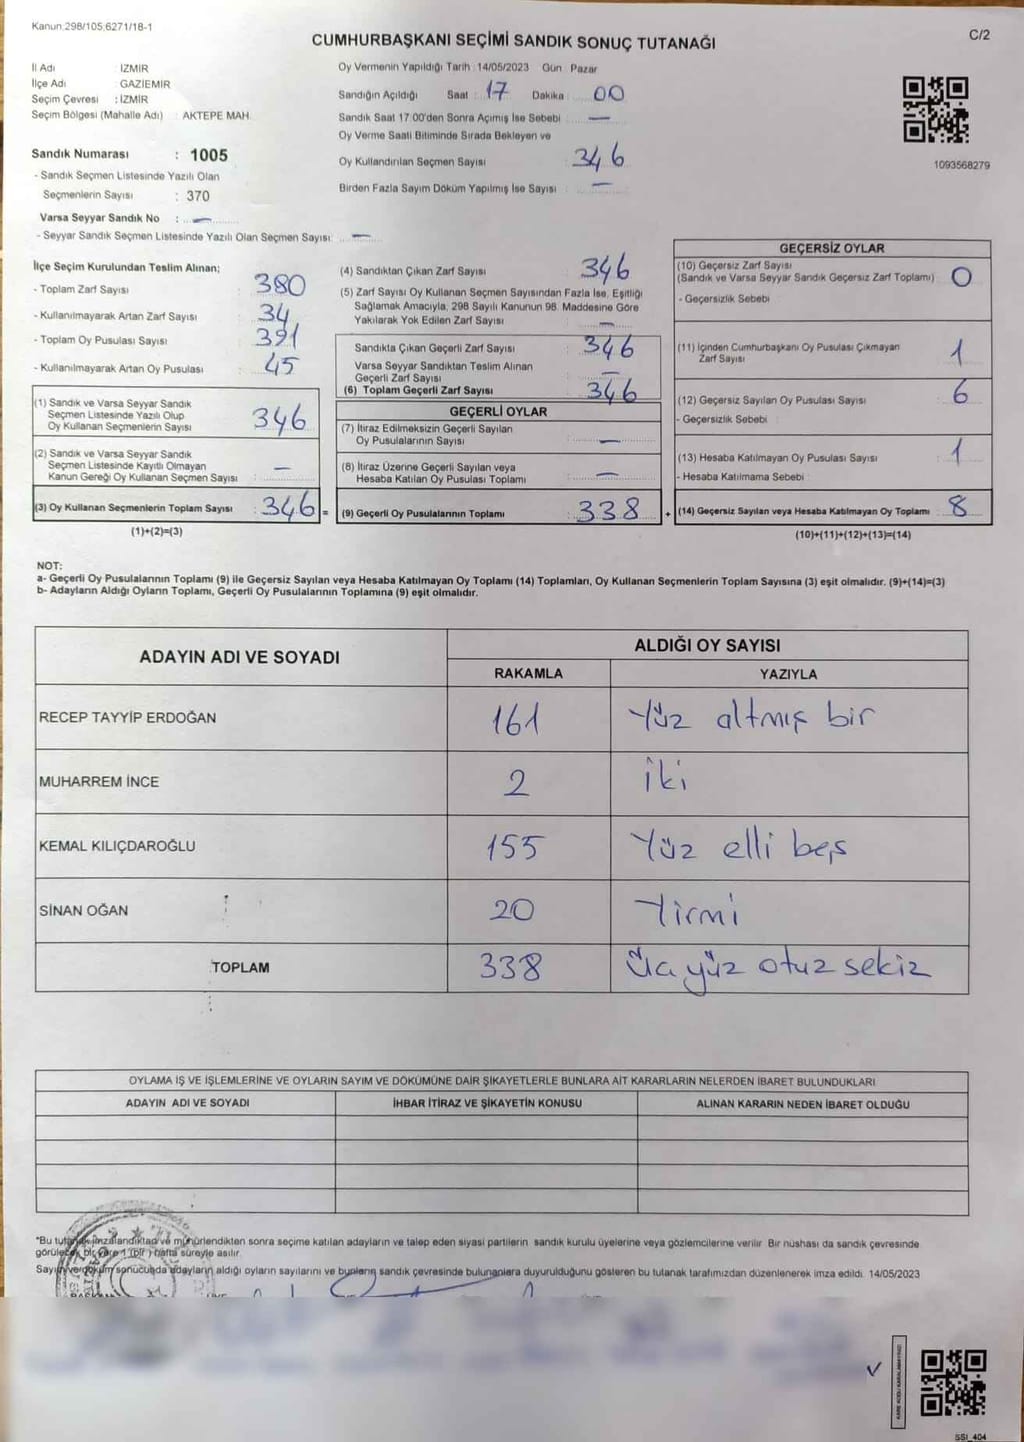 Kanun 298/105,6271/18-1
C/2
CUMHURBAŞKANI SEÇİMİ SANDIK SONUÇ TUTANAĞI
İl Adı İZMİR
İlçe Adı : GAZİEMİR
Seçim Çevresi : İZMİR
Seçim Bölgesi (Mahalle Adı) : AKTEPE MAH.
Sandık Numarası : 1005
- Sandık Seçmen Listesinde Yazılı Olan
Seçmenlerin Sayısı : 370
Varsa Seyyar Sandık No : —
- Seyyar Sandık Seçmen Listesinde Yazılı Olan Seçmen Sayısı : —
Oy Vermenin Yapıldığı Tarih : 14/05/2023 Gün : Pazar
Sandığın Açıldığı Saat : 17 Dakika : 00
Sandık Saat 17 00'den Sonra Açımış İse Sebebi : —
Oy Verme Saati Bitiminde Sırada Bekleyen ve
Oy Kullandırılan Seçmen Sayısı : 346
Birden Fazla Sayım Döküm Yapılmış İse Sayısı : —
1093568279
İlçe Seçim Kurulundan Teslim Alınan;
- Toplam Zarf Sayısı : 380
- Kullanılmayarak Artan Zarf Sayısı : 34
- Toplam Oy Pusulası Sayısı : 391
- Kullanılmayarak Artan Oy Pusulası : 45
(1) Sandık ve Varsa Seyyar Sandık
Seçmen Listesinde Yazılı Olup
Oy Kullanan Seçmenlerin Sayısı : 346
(2) Sandık ve Varsa Seyyar Sandık
Seçmen Listesinde Kayıtlı Olmayan
Kanun Gereği Oy Kullanan Seçmen Sayısı : —
(3) Oy Kullanan Seçmenlerin Toplam Sayısı : 346 =
(1)+(2)=(3)
(4) Sandıktan Çıkan Zarf Sayısı : 346
(5) Zarf Sayısı Oy Kullanan Seçmen Sayısından Fazla İse, Eşitliği
Sağlamak Amacıyla, 298 Sayılı Kanunun 98. Maddesine Göre
Yakılarak Yok Edilen Zarf Sayısı : —
Sandıkta Çıkan Geçerli Zarf Sayısı : 346
Varsa Seyyar Sandıktan Teslim Alınan
Geçerli Zarf Sayısı : —
(6) Toplam Geçerli Zarf Sayısı : 346
GEÇERLİ OYLAR
(7) İtiraz Edilmeksizin Geçerli Sayılan
Oy Pusulalarının Sayısı : —
(8) İtiraz Üzerine Geçerli Sayılan veya
Hesaba Katılan Oy Pusulası Toplamı : —
(9) Geçerli Oy Pusulalarının Toplamı : 338 +
GEÇERSİZ OYLAR
(10) Geçersiz Zarf Sayısı
(Sandık ve Varsa Seyyar Sandık Geçersiz Zarf Toplamı) : 0
- Geçersizlik Sebebi :
(11) İçinden Cumhurbaşkanı Oy Pusulası Çıkmayan
Zarf Sayısı : 1
(12) Geçersiz Sayılan Oy Pusulası Sayısı : 6
- Geçersizlik Sebebi :
(13) Hesaba Katılmayan Oy Pusulası Sayısı : 1
- Hesaba Katılmama Sebebi :
(14) Geçersiz Sayılan veya Hesaba Katılmayan Oy Toplamı : 8
(10)+(11)+(12)+(13)=(14)
NOT:
a- Geçerli Oy Pusulalarının Toplamı (9) ile Geçersiz Sayılan veya Hesaba Katılmayan Oy Toplamı (14) Toplamları, Oy Kullanan Seçmenlerin Toplam Sayısına (3) eşit olmalıdır. (9)+(14)=(3)
b- Adayların Aldığı Oyların Toplamı, Geçerli Oy Pusulalarının Toplamına (9) eşit olmalıdır.
ADAYIN ADI VE SOYADI ALDIĞI OY SAYISI
RAKAMLA YAZIYLA
RECEP TAYYİP ERDOĞAN 161 Yüz altmış bir
MUHARREM İNCE 2 iki
KEMAL KILIÇDAROĞLU 155 Yüz elli beş
SİNAN OĞAN 20 Yirmi
TOPLAM 338 Üç yüz otuz sekiz
OYLAMA İŞ VE İŞLEMLERİNE VE OYLARIN SAYIM VE DÖKÜMÜNE DAİR ŞİKAYETLERLE BUNLARA AİT KARARLARIN NELERDEN İBARET BULUNDUKLARI
ADAYIN ADI VE SOYADI İHBAR İTİRAZ VE ŞİKAYETİN KONUSU ALINAN KARARIN NEDEN İBARET OLDUĞU
*Bu tutanak imzalandıktan ve mühürlendikten sonra seçime katılan adayların ve talep eden siyasi partilerin sandık kurulu üyelerine veya gözlemcilerine verilir. Bir nüshası da sandık çevresinde
görülecek bir yere 1 (bir) hafta süreyle asılır.
Sayım ve döküm sonucunda adayların aldığı oyların sayılarını ve bunların sandık çevresinde bulunanlara duyurulduğunu gösteren bu tutanak tarafımızdan düzenlenerek imza edildi. 14/05/2023
KARE KODU KARALAMAYINIZ!
SSI_404